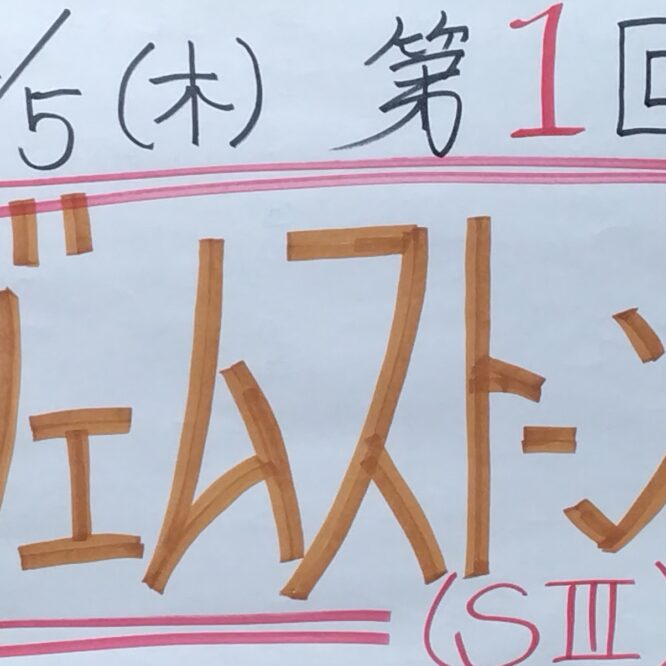 /5(木) 第1回
ジェムストーン
(SⅢ)